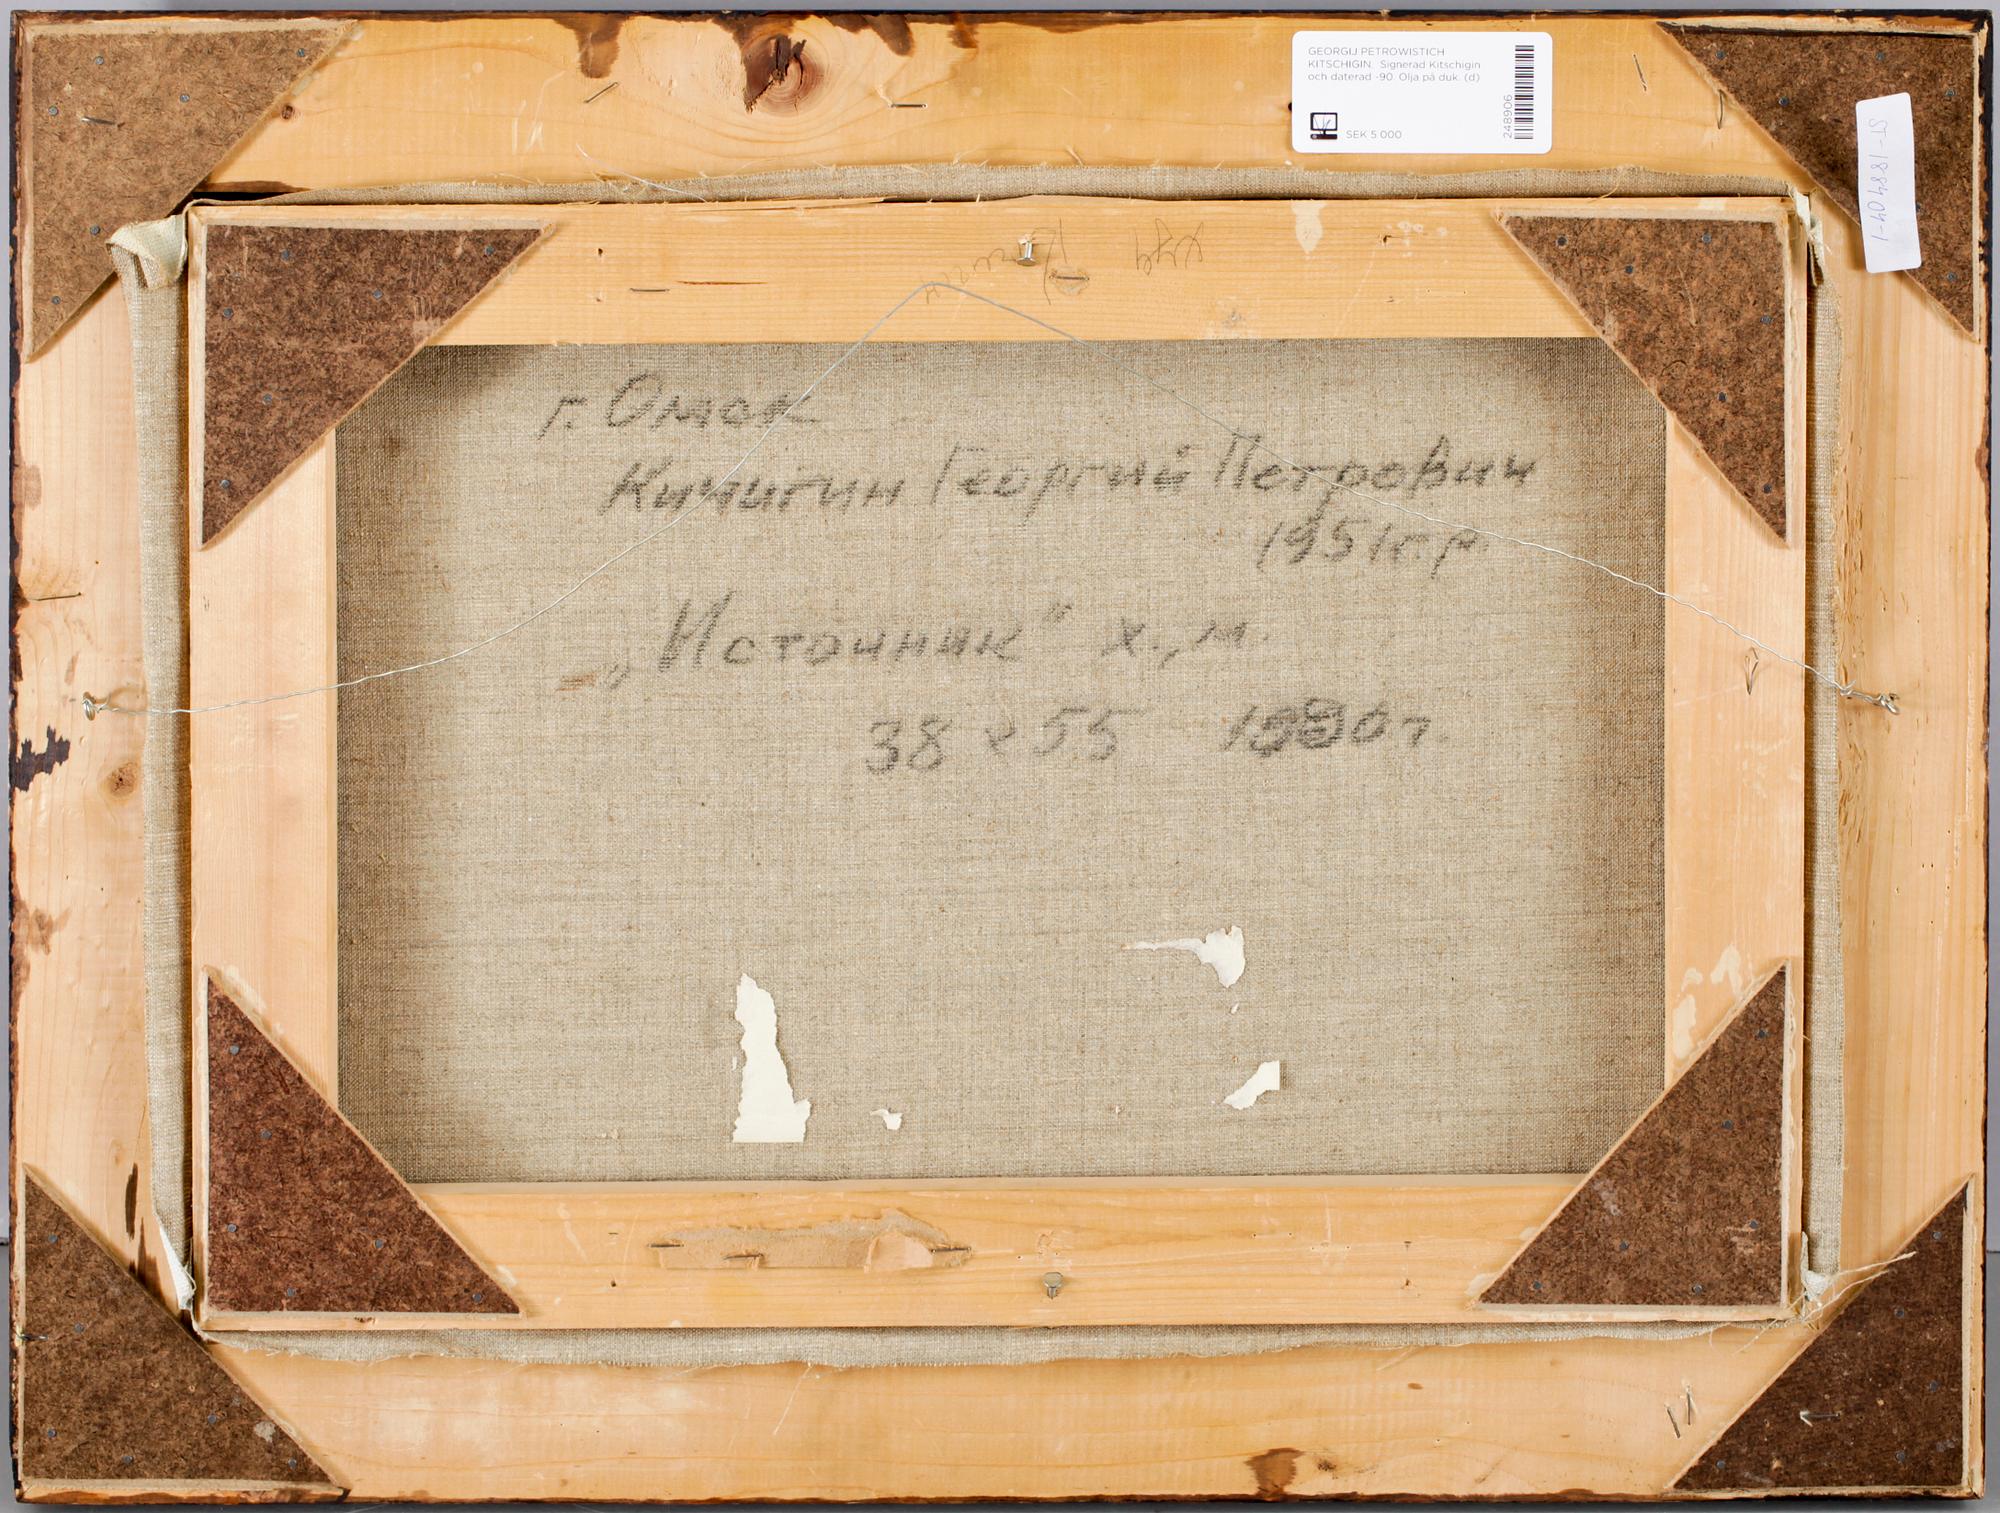 GEORGIJ PETROWISTICH
KITSCHIGIN. Signerad Kitschigin
och daterad -90. Olja på duk. (d)
SEK 5 000
248906
ST-188404-1
г. Омск
Кичигин Георгий Петрович
1951 г.р.
„Источник" х., м.
38 х 55 1990 г.